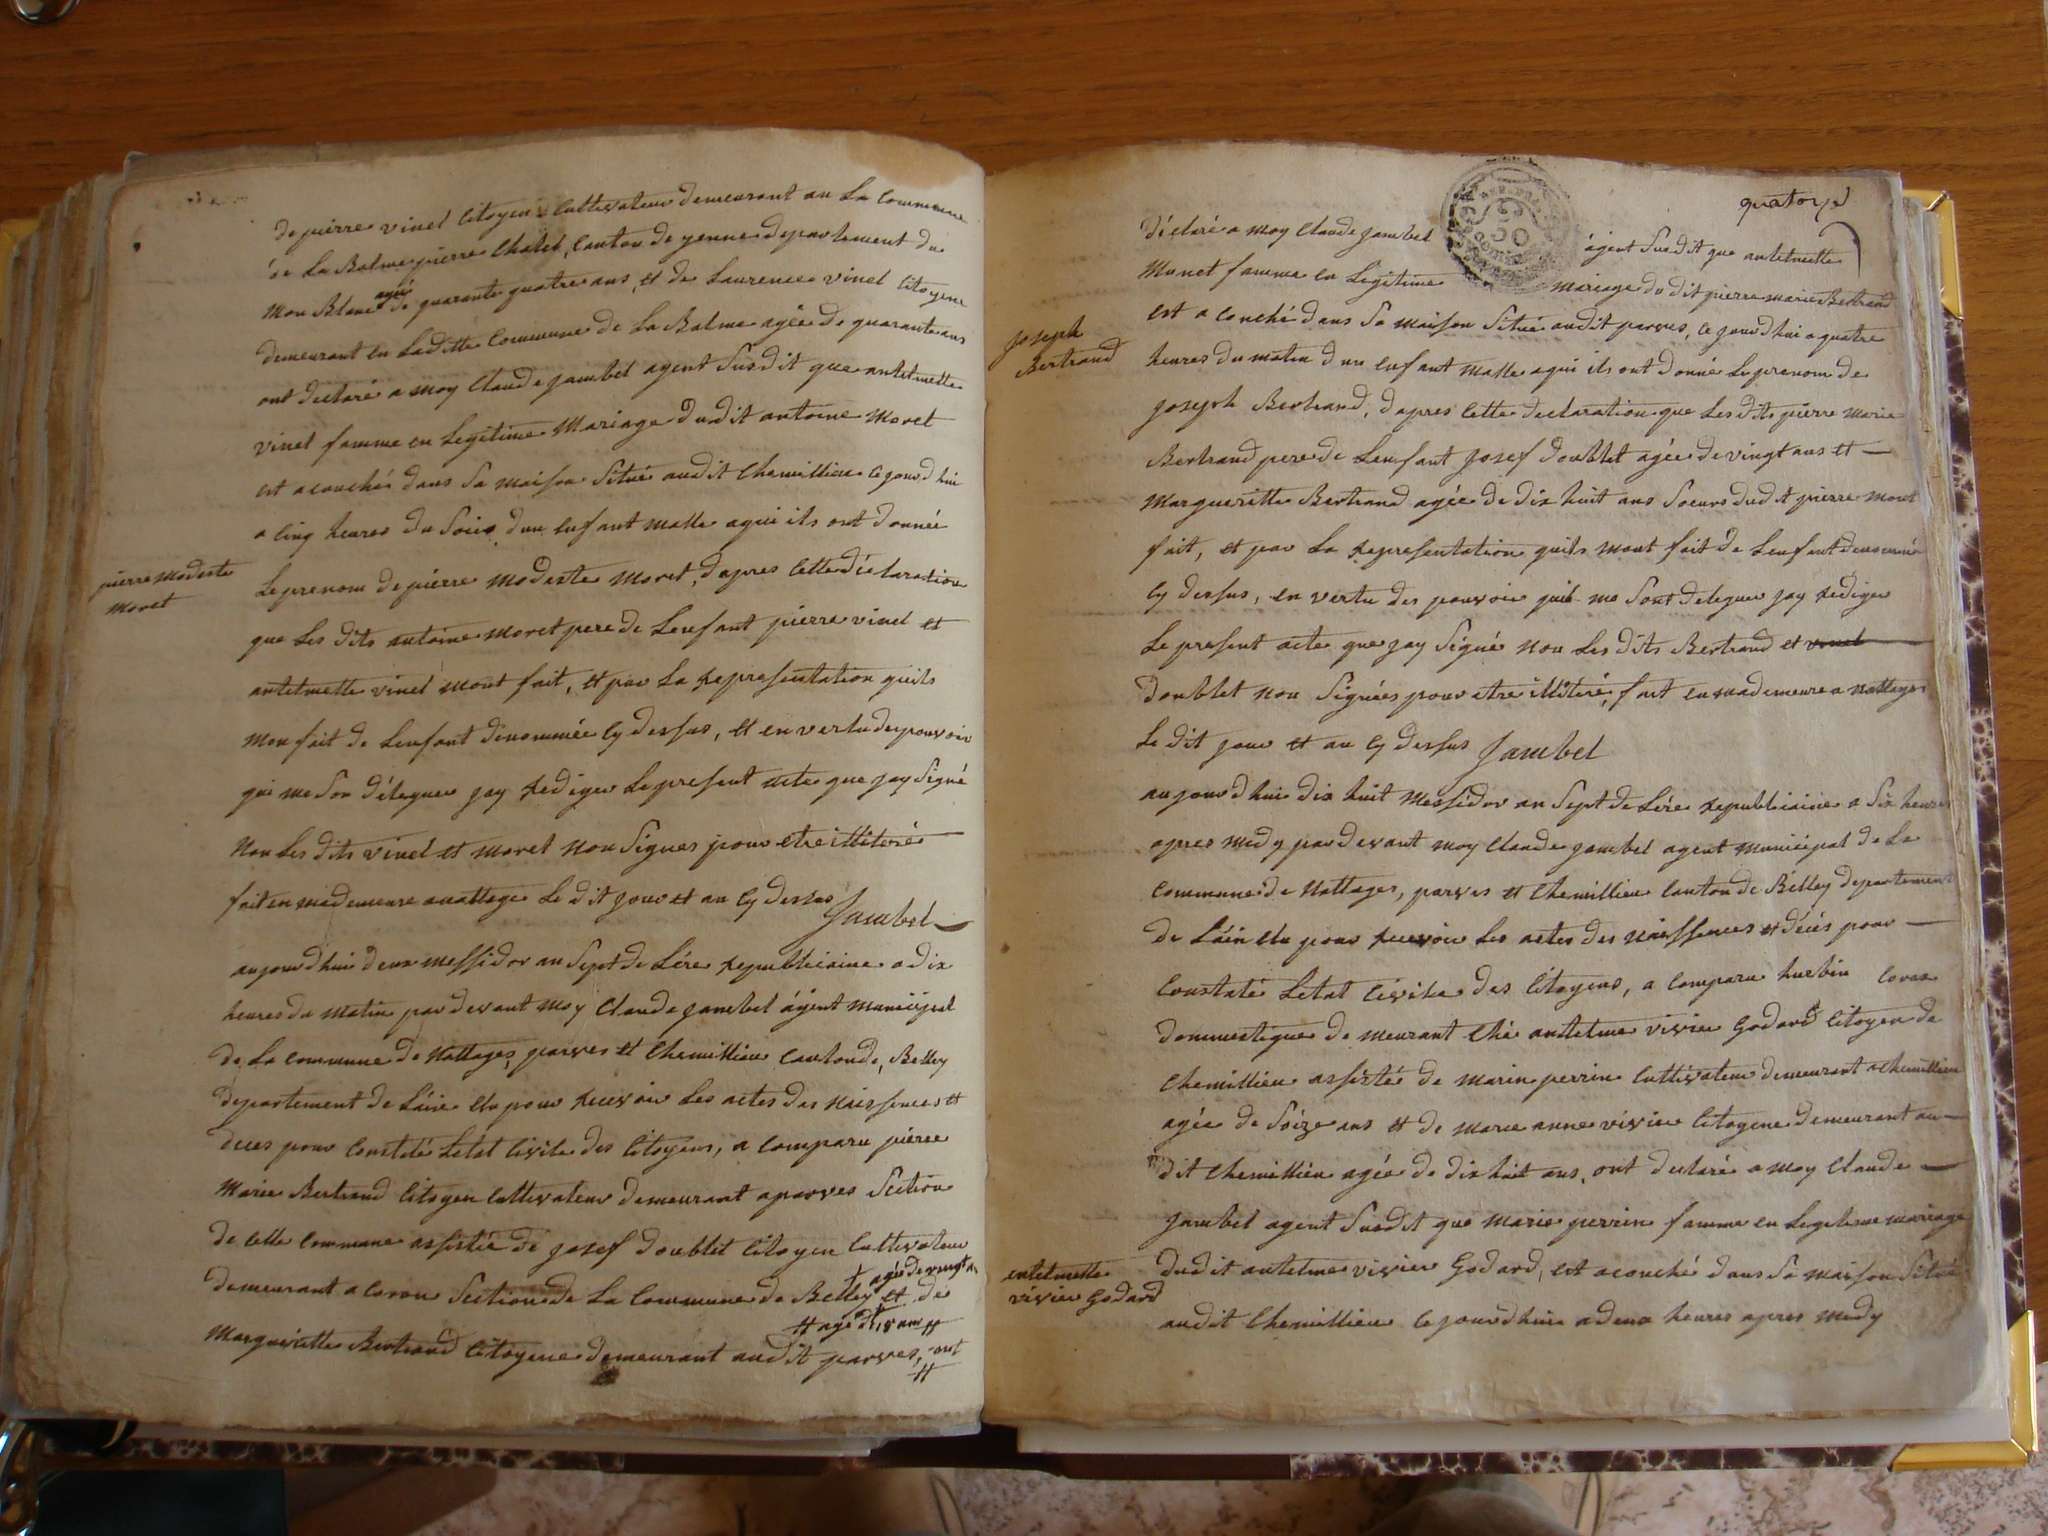 de pierre vinet Citoyen Cultivateur demeurant au La Commune
de La Balme pierre Chatel, Canton de yenne departement du
Mon Blanc agé de quarante quatre ans, et de Laurence vinet Citoyene
demeurant en Laditte Commune de La Balme agée de quarante ans
ont declaré a moy Claude Jambet agent Susdit que antelmette
vinet famme en Legitime Mariage dudit antoine Moret
est acouché dans Sa maison Situé audit Chemillieu Cejourdhui
a Cinq heures du Soir, dun Enfant malle aqui ils ont donnée
pierre Modeste
Moret
Le prenom de pierre Modeste Moret, dapres Cette déclaration
que Les dits antoine Moret pere de Lenfant pierre vinet et
antelmette vinet mont fait, et par La Representation quils
Mon fait de Lenfant denommée Cy dessus, et en vertu des pouvoir
qui me Son délequer jay Rediger Le present acte que jay Signé
Non Les dits vinet et moret non Signes pour etre illiteré
fait en mademeure a nattage Le dit jour et an Cy dessus
Jambet
aujourdhui deux Messidor an Sept de Lére Republicaine a dix
heures du Matin pardevant Moy Claude Jambet ágent Municipal
de La Commune de Nattages, parves et Chemillieu Canton de, Belley
departement de Láin Elu pour Recevoir Les actes des Naissences et
deces pour Constaté Letat Civile des Citoyens, a Comparu pierre
Marie Bertrand Citoyen Cultivateur demeurant a parves Section
de Cette Commune assistée de Josef doublet Citoyen Cultivateur
demeurant a Coron Section de La Commune de Belley + agée de vingt ans et de
# agé 18 ans #
Margueritte Bertrand Citoyene demeurant audit parves, ont
#
quatorze
déclaré a Moy Claude Jambet ágent Susdit que antelmette
Munet famme en Legitime mariage du dit pierre marie Bertrand
est a couché dans Sa maison Situé audit parves, Ce jourdhui a quatre
Joseph
Bertrand
heures du matin dun Enfant Malle aqui ils ont donné Le prenom de
Joseph Bertrand, dapres Cette declaration que Les dits pierre Marie
Bertrand pere de Lenfant Josef doublet agée de vingt ans et
Margueritte Bertrand agée de dix huit ans Soeurs dudit pierre mont
fait, et par La Representation quils mont fait de Lenfant denommé
Cy dessus, en vertu des pouvoir quil me Sont deleguer jay Rediger
Le present acte que jay Signé Non Les dits Bertrand et vinet
doublet Non Signées pour etre illiteré, fait en mademeure a Nattages
Le dit jour et an Cy dessus Jambet
aujourdhui dix huit Messidor an Sept de Lére Republicaine a Six heures
apres Medy pardevant Moy Claude Jambet agent Municipal de La
Commune de Nattages, parves et Chemillieu Canton de Bélley departement
de Láin Elu pour Recevoir Les actes des Naissences et décés pour
Constaté Letat Civile des Citoyens, a Comparu Coron
dommestique demeurant Ché antelme vivier Godard Citoyen de
Chemillieu assistée de Marin perrin Cultivateur demeurant a Chemillieu
agée de Séize ans et de Marie anne vivier Citoyene demeurant au
dit Chemillieu agée de dix huit ans, ont declaré a Moy Claude
Jambet agent Susdit que Marie perrin famme en Legitime mariage
antelmette
vivier Godard
dudit antelme vivier Godard, est acouché dans Sa maison Situé
audit Chemillieu Cejourdhui a deux heures apres Medy